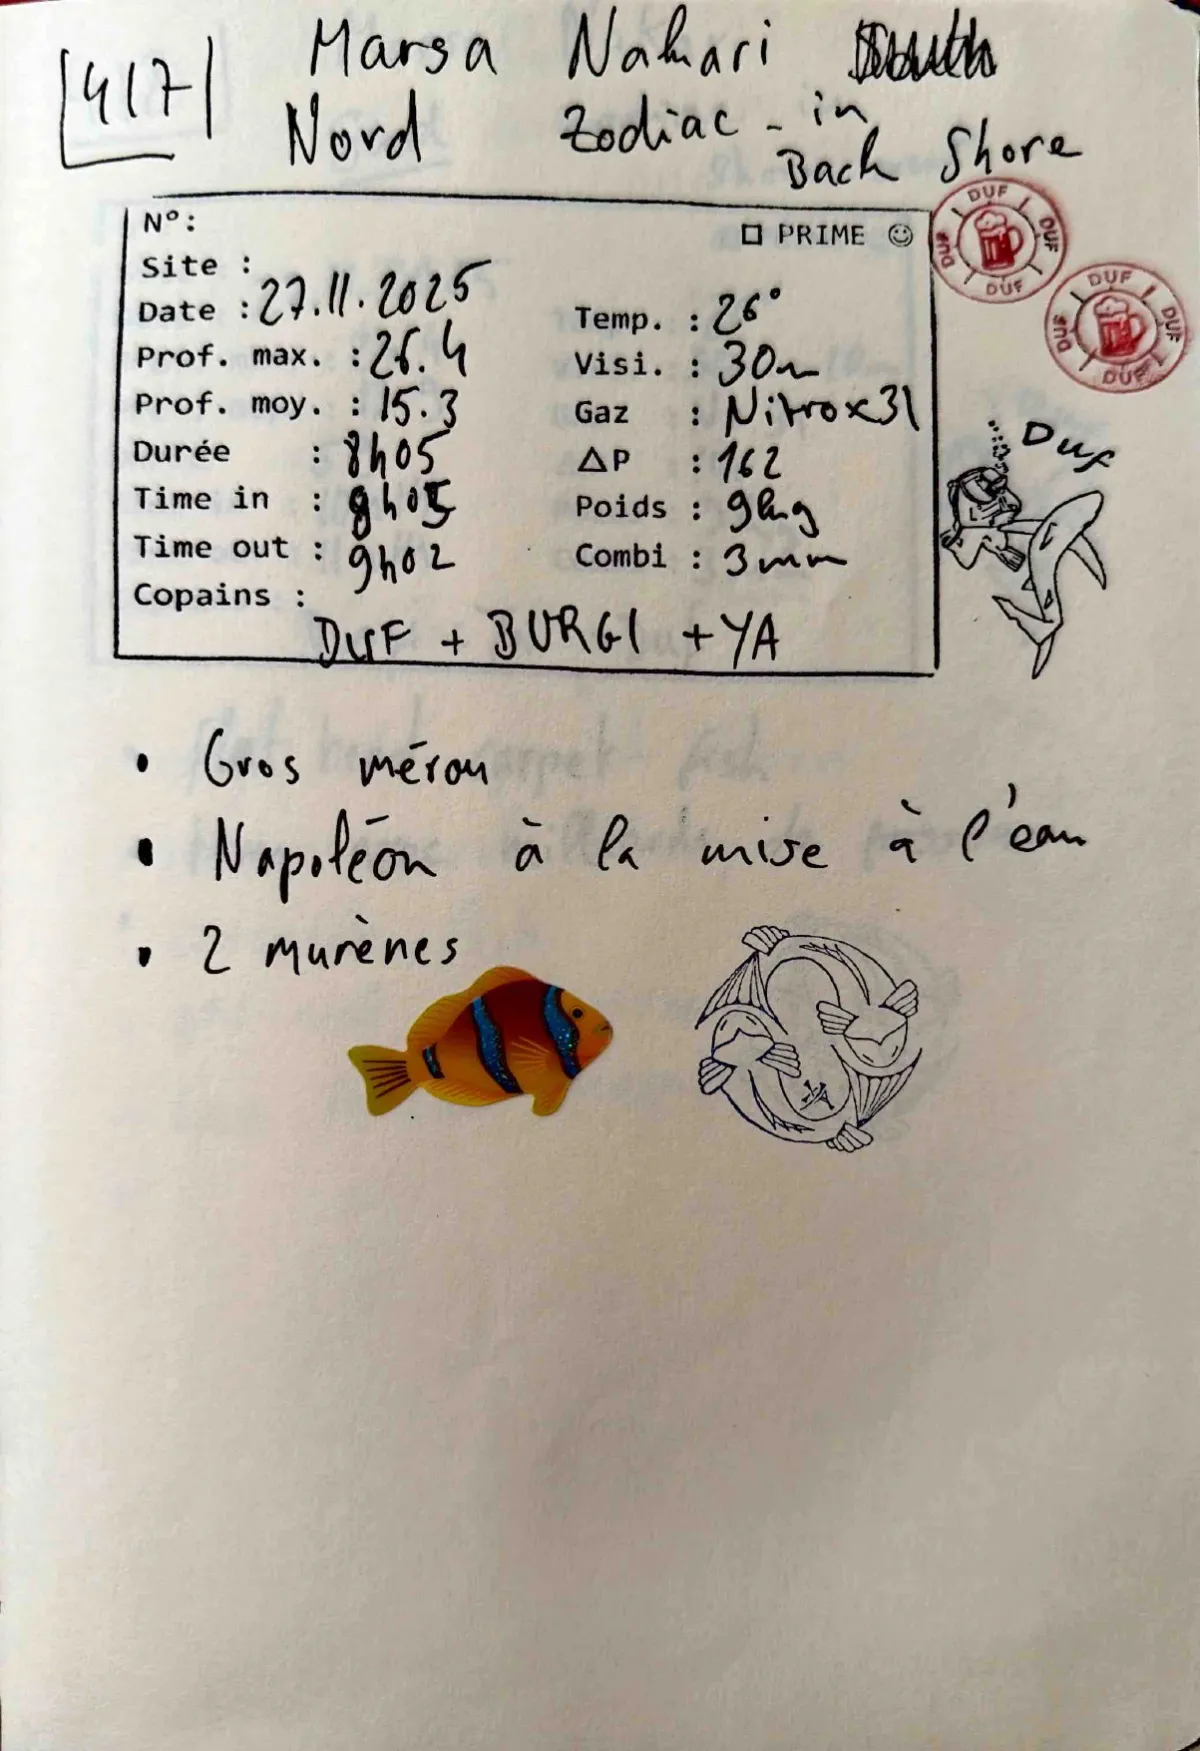 417 Marsa Nahari
Nord Zodiac - in
Back Shore
N°:
□ PRIME ☺
Site :
Date : 27.11.2025
Temp. : 26°
Prof. max. : 26.4
Visi. : 30m
Prof. moy. : 15.3
Gaz : Nitrox31
Durée : 8h05
ΔP : 162
Time in : 8h05
Poids : 9kg
Time out : 9h02
Combi : 3mm
Copains :
DUF + BURGI + YA
DUF DUF DUF DUF
DUF DUF DUF DUF
Duf
• Gros mérou
• Napoléon à la mise à l'eau
• 2 murènes
YA